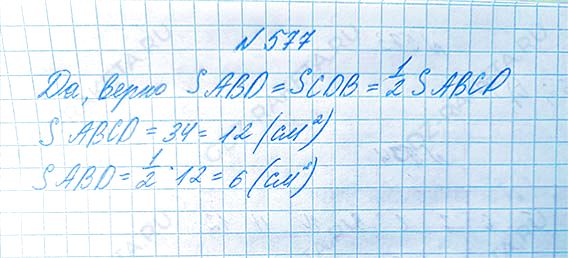 N 577
Да, верно SABD = SCDB = 1/2 SABCD
SABCD = 34 = 12 (см²)
SABD = 1/2 · 12 = 6 (см²)